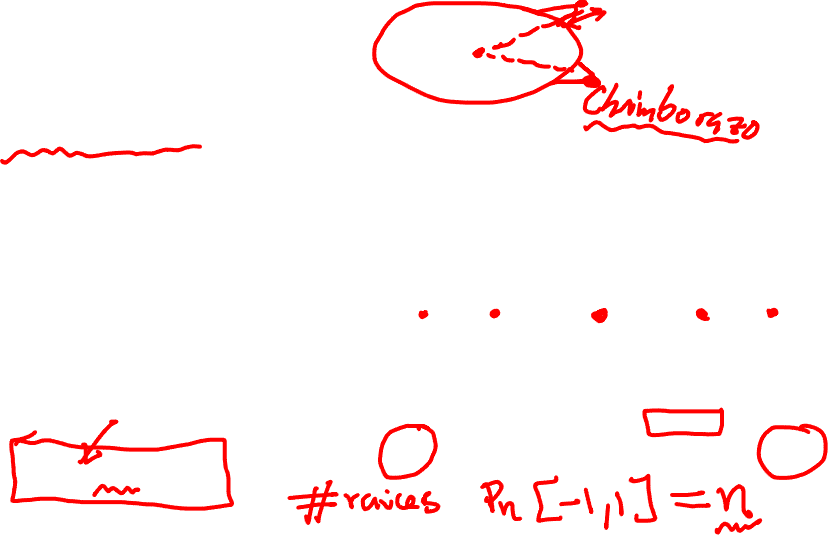 Chimborazo
#raices Pn [-1,1] = n